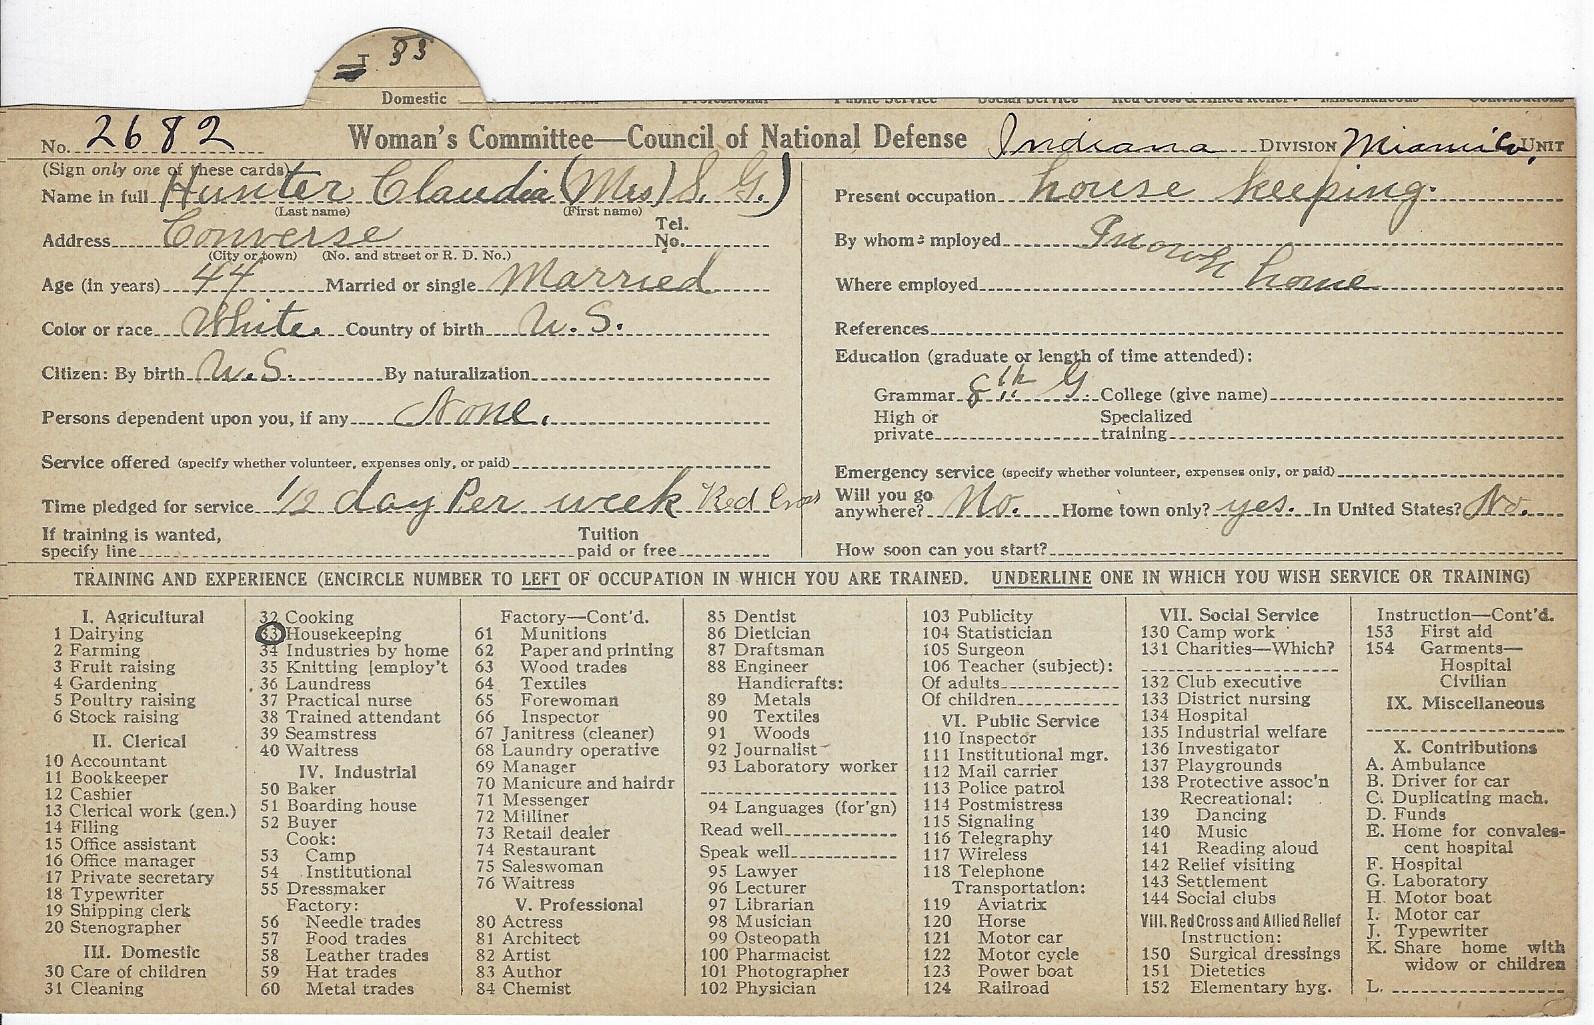 33
Domestic
No. 2682 Woman's Committee—Council of National Defense Indiana DIVISION Miami Co. UNIT
(Sign only one of these cards)
Name in full Hunter Claudia (Mrs) S. G.)
(Last name) (First name)
Address Converse Tel. No.
(City or town) (No. and street or R. D. No.)
Age (in years) 44 Married or single Married
Color or race White. Country of birth U.S.
Citizen: By birth U.S. By naturalization
Persons dependent upon you, if any None.
Service offered (specify whether volunteer, expenses only, or paid)
Time pledged for service 1/2 day Per week Red Cross
If training is wanted,
specify line Tuition paid or free
Present occupation house keeping.
By whom employed In own
Where employed home
References
Education (graduate or length of time attended):
Grammar 8th G. College (give name)
High or private Specialized training
Emergency service (specify whether volunteer, expenses only, or paid)
Will you go anywhere? No. Home town only? yes. In United States? No.
How soon can you start?
TRAINING AND EXPERIENCE (ENCIRCLE NUMBER TO LEFT OF OCCUPATION IN WHICH YOU ARE TRAINED. UNDERLINE ONE IN WHICH YOU WISH SERVICE OR TRAINING)
I. Agricultural
1 Dairying
2 Farming
3 Fruit raising
4 Gardening
5 Poultry raising
6 Stock raising
II. Clerical
10 Accountant
11 Bookkeeper
12 Cashier
13 Clerical work (gen.)
14 Filing
15 Office assistant
16 Office manager
17 Private secretary
18 Typewriter
19 Shipping clerk
20 Stenographer
III. Domestic
30 Care of children
31 Cleaning
32 Cooking
33 Housekeeping
34 Industries by home
35 Knitting [employ't
36 Laundress
37 Practical nurse
38 Trained attendant
39 Seamstress
40 Waitress
IV. Industrial
50 Baker
51 Boarding house
52 Buyer
Cook:
53 Camp
54 Institutional
55 Dressmaker
Factory:
56 Needle trades
57 Food trades
58 Leather trades
59 Hat trades
60 Metal trades
Factory—Cont'd.
61 Munitions
62 Paper and printing
63 Wood trades
64 Textiles
65 Forewoman
66 Inspector
67 Janitress (cleaner)
68 Laundry operative
69 Manager
70 Manicure and hairdr
71 Messenger
72 Milliner
73 Retail dealer
74 Restaurant
75 Saleswoman
76 Waitress
V. Professional
80 Actress
81 Architect
82 Artist
83 Author
84 Chemist
85 Dentist
86 Dietician
87 Draftsman
88 Engineer
Handicrafts:
89 Metals
90 Textiles
91 Woods
92 Journalist
93 Laboratory worker
94 Languages (for'gn)
Read well
Speak well
95 Lawyer
96 Lecturer
97 Librarian
98 Musician
99 Osteopath
100 Pharmacist
101 Photographer
102 Physician
103 Publicity
104 Statistician
105 Surgeon
106 Teacher (subject):
Of adults
Of children
VI. Public Service
110 Inspector
111 Institutional mgr.
112 Mail carrier
113 Police patrol
114 Postmistress
115 Signaling
116 Telegraphy
117 Wireless
118 Telephone
Transportation:
119 Aviatrix
120 Horse
121 Motor car
122 Motor cycle
123 Power boat
124 Railroad
VII. Social Service
130 Camp work
131 Charities—Which?
132 Club executive
133 District nursing
134 Hospital
135 Industrial welfare
136 Investigator
137 Playgrounds
138 Protective assoc'n
Recreational:
139 Dancing
140 Music
141 Reading aloud
142 Relief visiting
143 Settlement
144 Social clubs
VIII. Red Cross and Allied Relief
Instruction:
150 Surgical dressings
151 Dietetics
152 Elementary hyg.
Instruction—Cont'd.
153 First aid
154 Garments—
Hospital
Civilian
IX. Miscellaneous
X. Contributions
A. Ambulance
B. Driver for car
C. Duplicating mach.
D. Funds
E. Home for convales-
cent hospital
F. Hospital
G. Laboratory
H. Motor boat
I. Motor car
J. Typewriter
K. Share home with
widow or children
L.